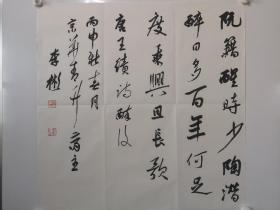 阮籍醒時少陶潜
醉日多百年何足
度乘興且長歌
唐王績詩醉後
丙申 月
京華 齋主
李